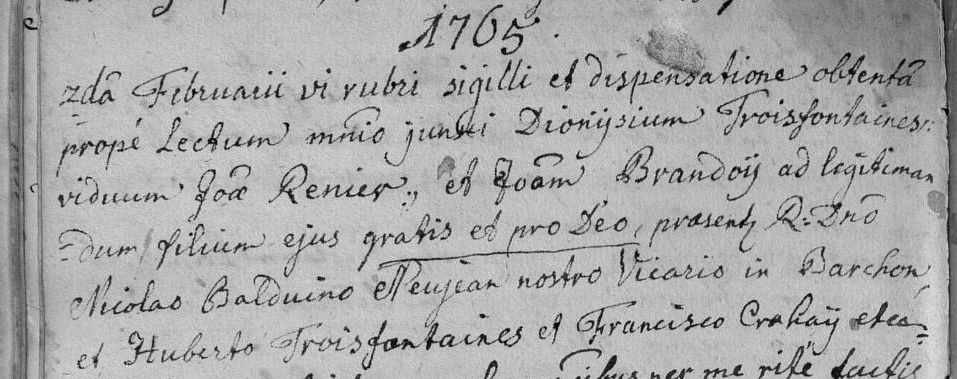 1765.
2da Februarii vi rubri sigilli et dispensatione obtentâ
propé Lectum mnio junxi Dionijsium Troisfontaines
viduum Joæ Renier, et Joām Brandoij ad legitiman
-dum filium ejus gratis et pro Deo, præsent R: Dno
Nicolao Balduino Neujean nostro Vicario in Barchon,
et Huberto Troisfontaines et Francisco Crahaÿ etca
per me rité factis